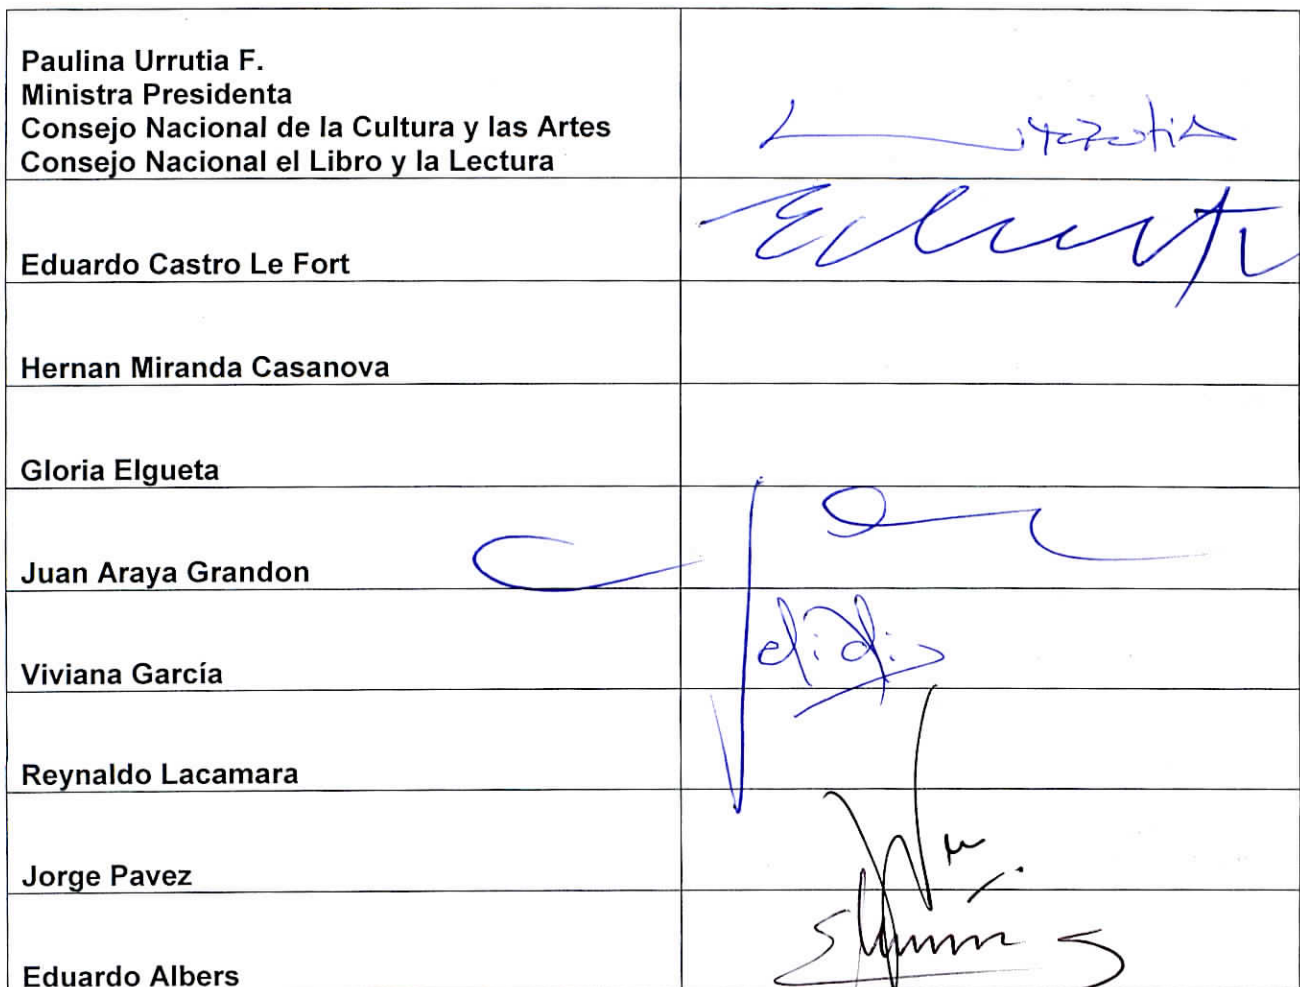 Paulina Urrutia F.
Ministra Presidenta
Consejo Nacional de la Cultura y las Artes
Consejo Nacional el Libro y la Lectura
Eduardo Castro Le Fort
Hernan Miranda Casanova
Gloria Elgueta
Juan Araya Grandon
Viviana García
Reynaldo Lacamara
Jorge Pavez
Eduardo Albers